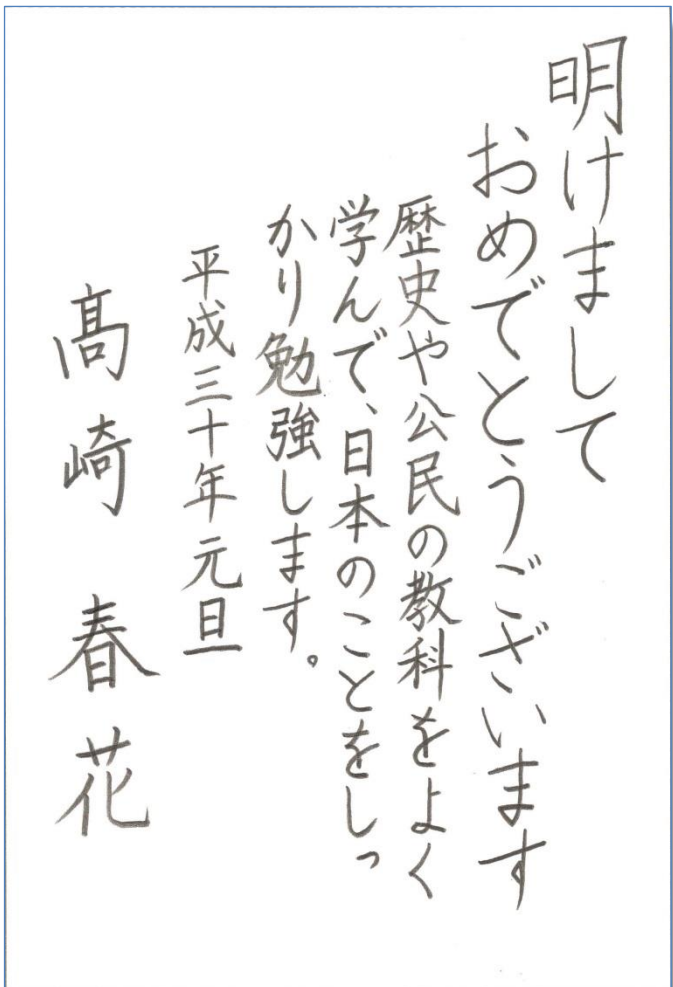 明けまして
おめでとうございます
歴史や公民の教科をよく
学んで、日本のことをしっ
かり勉強します。
平成三十年元旦
髙崎 春花